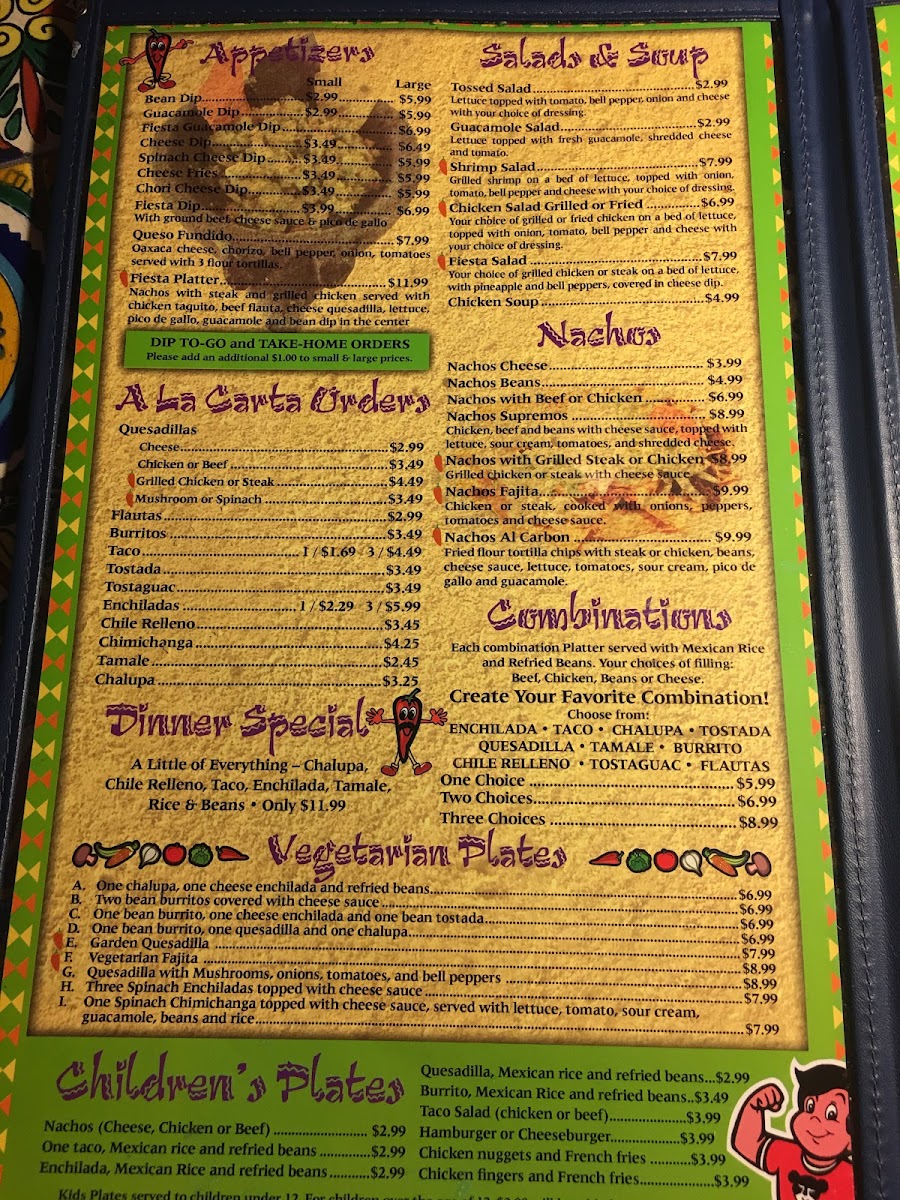 Appetizers
Small Large
Bean Dip $2.99 $5.99
Guacamole Dip $2.99 $5.99
Fiesta Guacamole Dip $6.99
Cheese Dip $3.49 $6.49
Spinach Cheese Dip $3.49 $5.99
Cheese Fries $3.49 $5.99
Chori Cheese Dip $3.49 $5.99
Fiesta Dip $3.99 $6.99
With ground beef, cheese sauce & pico de gallo
Queso Fundido $7.99
Oaxaca cheese, chorizo, bell pepper, onion, tomatoes
served with 3 flour tortillas.
Fiesta Platter $11.99
Nachos with steak and grilled chicken served with
chicken taquito, beef flauta, cheese quesadilla, lettuce,
pico de gallo, guacamole and bean dip in the center
DIP TO-GO and TAKE-HOME ORDERS
Please add an additional $1.00 to small & large prices.
A La Carta Orders
Quesadillas
Cheese $2.99
Chicken or Beef $3.49
Grilled Chicken or Steak $4.49
Mushroom or Spinach $3.49
Flautas $2.99
Burritos $3.49
Taco 1 / $1.69 3 / $4.49
Tostada $3.49
Tostaguac $3.49
Enchiladas 1 / $2.29 3 / $5.99
Chile Relleno $3.45
Chimichanga $4.25
Tamale $2.45
Chalupa $3.25
Dinner Special
A Little of Everything – Chalupa,
Chile Relleno, Taco, Enchilada, Tamale,
Rice & Beans • Only $11.99
Salads & Soup
Tossed Salad $2.99
Lettuce topped with tomato, bell pepper, onion and cheese
with your choice of dressing.
Guacamole Salad $2.99
Lettuce topped with fresh guacamole, shredded cheese
and tomato.
Shrimp Salad $7.99
Grilled shrimp on a bed of lettuce, topped with onion,
tomato, bell pepper and cheese with your choice of dressing.
Chicken Salad Grilled or Fried $6.99
Your choice of grilled or fried chicken on a bed of lettuce,
topped with onion, tomato, bell pepper and cheese with
your choice of dressing.
Fiesta Salad $7.99
Your choice of grilled chicken or steak on a bed of lettuce,
with pineapple and bell peppers, covered in cheese dip.
Chicken Soup $4.99
Nachos
Nachos Cheese $3.99
Nachos Beans $4.99
Nachos with Beef or Chicken $6.99
Nachos Supremos $8.99
Chicken, beef and beans with cheese sauce, topped with
lettuce, sour cream, tomatoes, and shredded cheese.
Nachos with Grilled Steak or Chicken $8.99
Grilled chicken or steak with cheese sauce
Nachos Fajita $9.99
Chicken or steak, cooked with onions, peppers,
tomatoes and cheese sauce.
Nachos Al Carbon $9.99
Fried flour tortilla chips with steak or chicken, beans,
cheese sauce, lettuce, tomatoes, sour cream, pico de
gallo and guacamole.
Combinations
Each combination Platter served with Mexican Rice
and Refried Beans. Your choices of filling:
Beef, Chicken, Beans or Cheese.
Create Your Favorite Combination!
Choose from:
ENCHILADA • TACO • CHALUPA • TOSTADA
QUESADILLA • TAMALE • BURRITO
CHILE RELLENO • TOSTAGUAC • FLAUTAS
One Choice $5.99
Two Choices $6.99
Three Choices $8.99
Vegetarian Plates
A. One chalupa, one cheese enchilada and refried beans $6.99
B. Two bean burritos covered with cheese sauce $6.99
C. One bean burrito, one cheese enchilada and one bean tostada $6.99
D. One bean burrito, one quesadilla and one chalupa $6.99
E. Garden Quesadilla $7.99
F. Vegetarian Fajita $8.99
G. Quesadilla with Mushrooms, onions, tomatoes, and bell peppers $8.99
H. Three Spinach Enchiladas topped with cheese sauce $7.99
I. One Spinach Chimichanga topped with cheese sauce, served with lettuce, tomato, sour cream,
guacamole, beans and rice $7.99
Children's Plates
Nachos (Cheese, Chicken or Beef) $2.99
One taco, Mexican rice and refried beans $2.99
Enchilada, Mexican Rice and refried beans $2.99
Quesadilla, Mexican rice and refried beans $2.99
Burrito, Mexican Rice and refried beans $3.49
Taco Salad (chicken or beef) $3.99
Hamburger or Cheeseburger $3.99
Chicken nuggets and French fries $3.99
Chicken fingers and French fries $3.99
Kids Plates served to children under 12. For children over the age of 12,